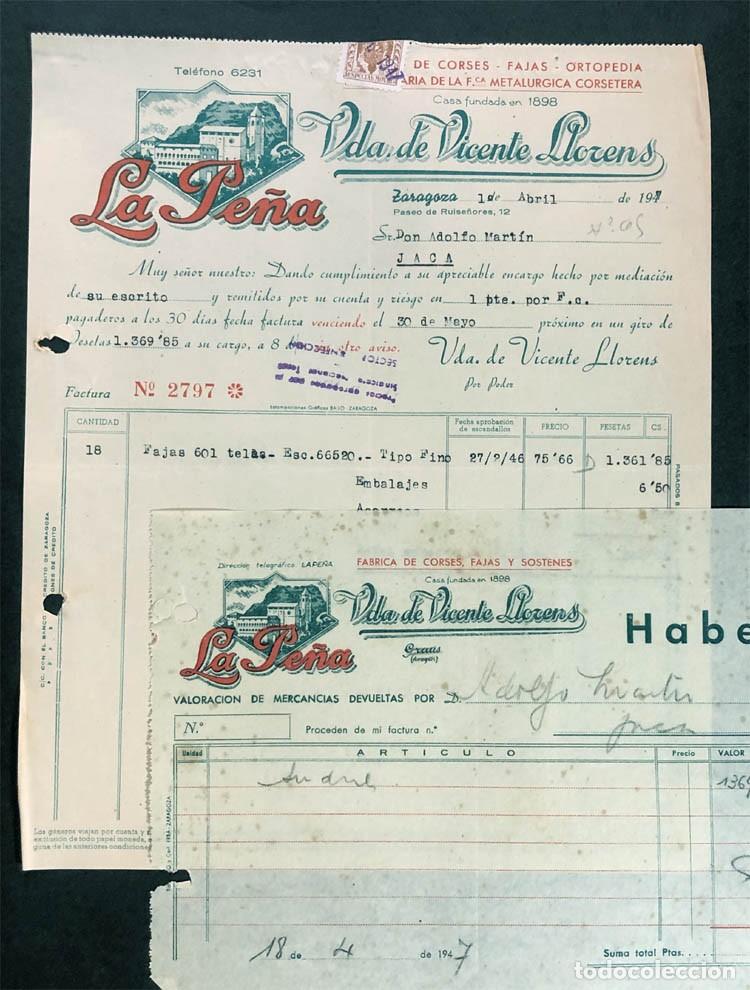 DE CORSES - FAJAS - ORTOPEDIA
ARIA DE LA F.CA METALURGICA CORSETERA
Teléfono 6231
Casa fundada en 1898
Vda. de Vicente Llorens
La Peña
Zaragoza 1 de Abril de 1947
Paseo de Ruiseñores, 12
Sr. Don Adolfo Martín
JACA
Muy señor nuestro: Dando cumplimiento a su apreciable encargo hecho por mediación
de su escrito y remitidos por su cuenta y riesgo en 1 pte. por F.c.
pagaderos a los 30 días fecha factura venciendo el 30 de Mayo próximo en un giro de
Pesetas 1.369'85 a su cargo, a 8 otro aviso.
Vda. de Vicente Llorens
Por Poder
Factura Nº 2797
CANTIDAD
Fecha aprobación de escandallos
PRECIO
PESETAS
CS.
18 Fajas 601 telas- Esc.66520.- Tipo Fino 27/2/46 75'66 1.361'85
Embalajes 6'50
C/C. CON EL BANCO
CREDITO DE ZARAGOZA
Los géneros viajan por cuenta y
exclusión de todo papel moneda,
giros de las anteriores condiciones
Dirección telegráfica: LAPEÑA
FABRICA DE CORSES, FAJAS Y SOSTENES
Casa fundada en 1898
Vda. de Vicente Llorens
La Peña
Graus
(Aragón)
Habe
VALORACION DE MERCANCIAS DEVUELTAS POR D. Adolfo Martín
Jaca
N.º
Proceden de mi factura n.º
Unidad
ARTICULO
Precio
VALOR
1369
18 de 4 de 1947
Suma total Ptas.....
todocoleccion